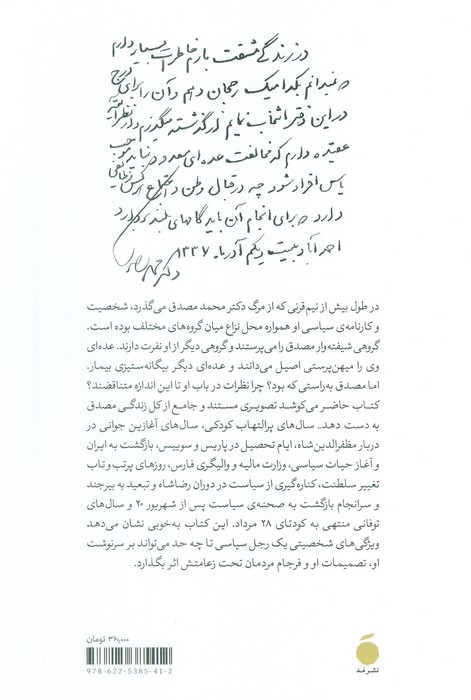 در زندگی مشقت بارم خاطرات بسیار دارم
که نمیدانم بکدامیک رجحان دهم و آن را برای درج
در این دفتر انتخاب نمایم از گذشته میگذرم و از نظر آتیه
عقیده دارم که مخالفت عده‌ای معدود نباید موجب
یاس افراد شود چه در قبال وطن و اجتماع هر کس وظایفی
دارد که برای انجام آن باید گامهای بلند بردارد
احمدآباد بیست و یکم آذرماه ۱۳۳۷
دکتر محمد مصدق
در طول بیش از نیم‌قرنی که از مرگ دکتر محمد مصدق می‌گذرد، شخصیت
و کارنامه‌ی سیاسی او همواره محل نزاع میان گروه‌های مختلف بوده است.
گروهی شیفته‌وار مصدق را می‌پرستند و گروهی دیگر از او نفرت دارند. عده‌ای
وی را میهن‌پرستی اصیل می‌دانند و عده‌ای دیگر بیگانه‌ستیزی بیمار.
اما مصدق به‌راستی که بود؟ چرا نظرات در باب او تا این اندازه متناقضند؟
کتاب حاضر می‌کوشد تصویری مستند و جامع از کل زندگی مصدق
به دست دهد.. سال‌های پرالتهاب کودکی، سال‌های آغازین جوانی در
دربار مظفرالدین‌شاه، ایام تحصیل در پاریس و سوییس، بازگشت به ایران
و آغاز حیات سیاسی، وزارت مالیه و والیگری فارس، روزهای پرتب‌وتاب
تغییر سلطنت، کناره‌گیری از سیاست در دوران رضاشاه و تبعید به بیرجند
و سرانجام بازگشت به صحنه‌ی سیاست پس از شهریور ۲۰ و سال‌های
توفانی منتهی به کودتای ۲۸ مرداد. این کتاب به‌خوبی نشان می‌دهد
ویژگی‌های شخصیتی یک رجل سیاسی تا چه حد می‌تواند بر سرنوشت
او، تصمیمات او و فرجام مردمان تحت زعامتش اثر بگذارد.
۳۶۰,۰۰۰ تومان
978-622-5385-41-2
نشر مَد